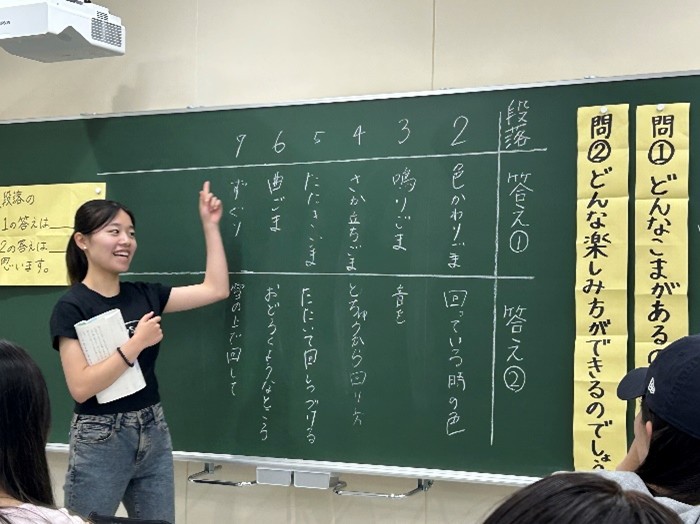 問① どんなこまがあるの
問② どんな楽しみ方ができるのでしょう
段落 答え① 答え②
2 色かわりごま 回っている時の色
3 鳴りごま 音を
4 さか立ちごま とちゅうから回り方
5 たたきごま たたいて回しつづける
6 曲ごま おどろくようなところ
7 ずぐり 雪の上で回して
段落の
1の答えは
2の答えは
思います。